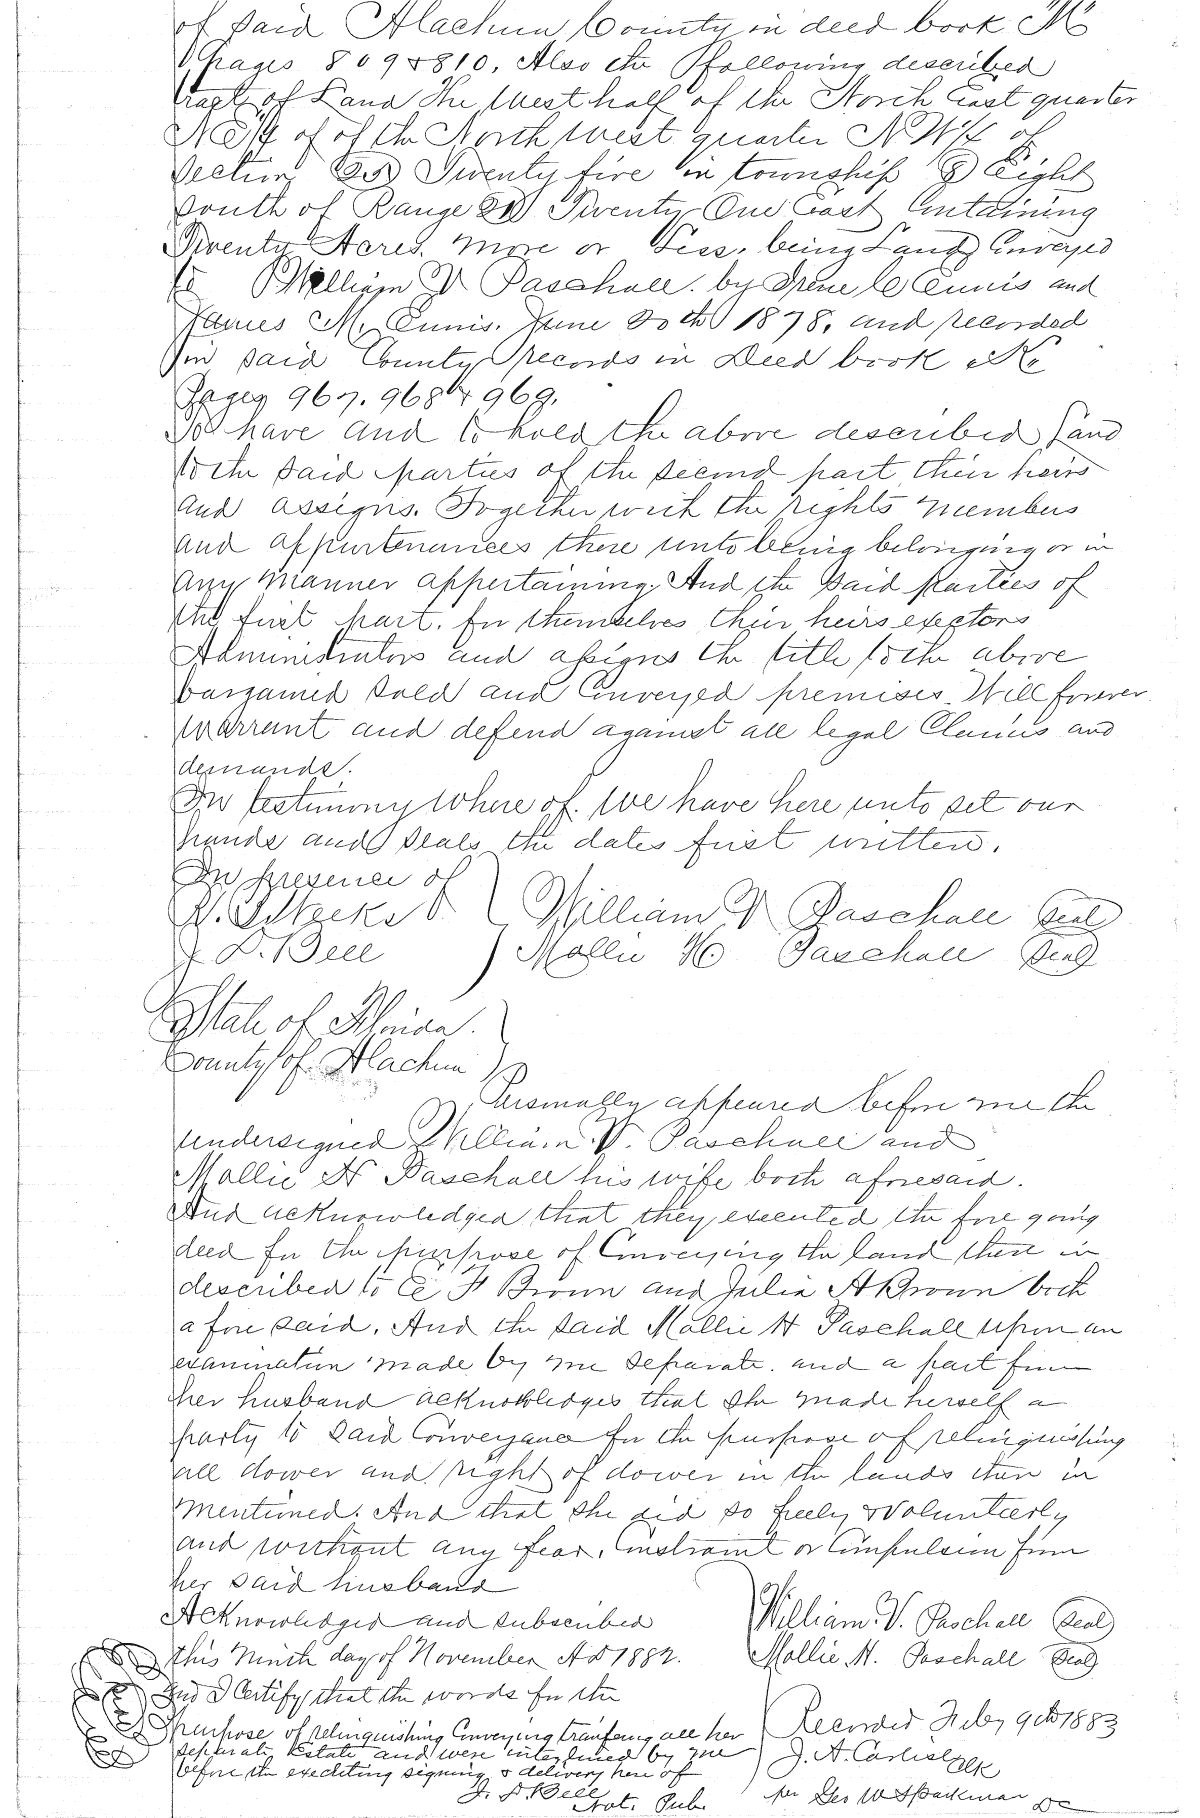 of said Alachua County in deed book M
Pages 809 & 810. Also the following described
tract of Land The West half of the North East quarter
NE/4 of of the North West quarter NW/4 of
Section (25) Twenty five in township (8) Eight
South of Range 21 Twenty One East Containing
Twenty Acres. More or Less. being Land Conveyed
to William V Paschall. by Irene C Ennis and
James M. Ennis. June 20th 1878. and recorded
in said County records in Deed book
Pages 967. 968 & 969.
To have and to hold the above described Land
to the said parties of the second part their heirs
and assigns. Together with the rights members
and appurtenances there unto being belonging or in
any manner appertaining. And the said parties of
the first part. for themselves their heirs exectors
Administrators and assigns the title to the above
bargained sold and Conveyed premises Will forever
warrant and defend against all legal Claims and
demands.
In testimony where of. we have here unto set our
hands and seals the dates first written.
In presence of
William V Paschall Seal
J. D. Bell Mollie H Paschall Seal
State of Florida.
County of Alachua
Personally appeared before me the
undersigned William V. Paschall and
Mollie H Paschall his wife both aforesaid.
And acknowledged that they executed the fore going
deed for the purpose of Conveying the land there in
described to C F Brown and Julia A Brown both
a fore said. And the said Mollie H Paschall upon an
examination made by me separate. and a part from
her husband acknowledges that she made herself a
party to said Conveyance for the purpose of relinquishing
all dower and right of dower in the lands there in
Mentioned. And that she did so freely & Volunteerly
and without any fear. Constraint or Compulsion from
her said husband
Acknowledged and subscribed William V. Paschall Seal
this Ninth day of November AD 1882. Mollie H. Paschall Seal
And I Certify that the words for the
purpose of relinquishing Conveying all her Recorded Feby 9th 1883
separate Estate and were interlined by me J. A. Carlisle Clk
before the executing signing & delivery here of
J. D. Bell per Geo W Sparkman DC
Not. Pub.